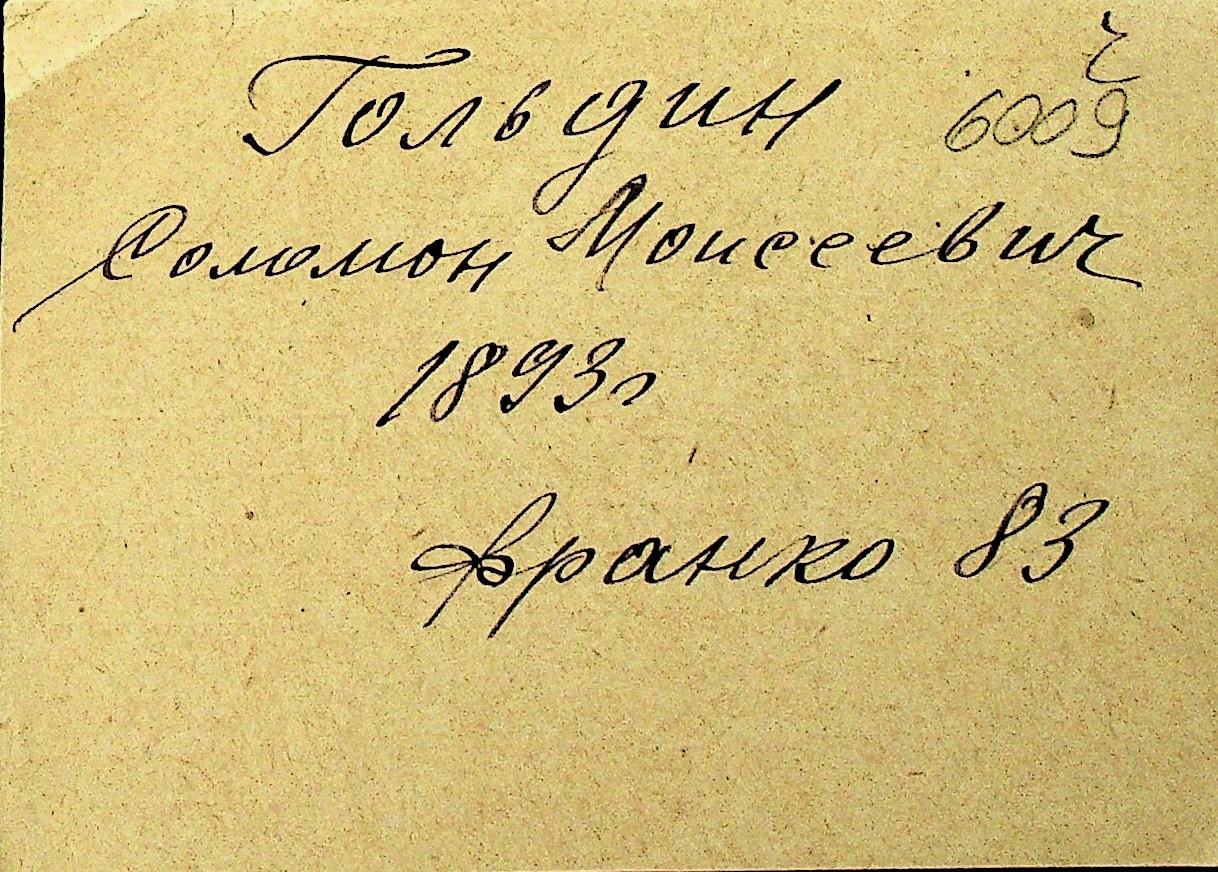 Гольдин 6009
Соломон Моисеевич
1893г
Франко 83